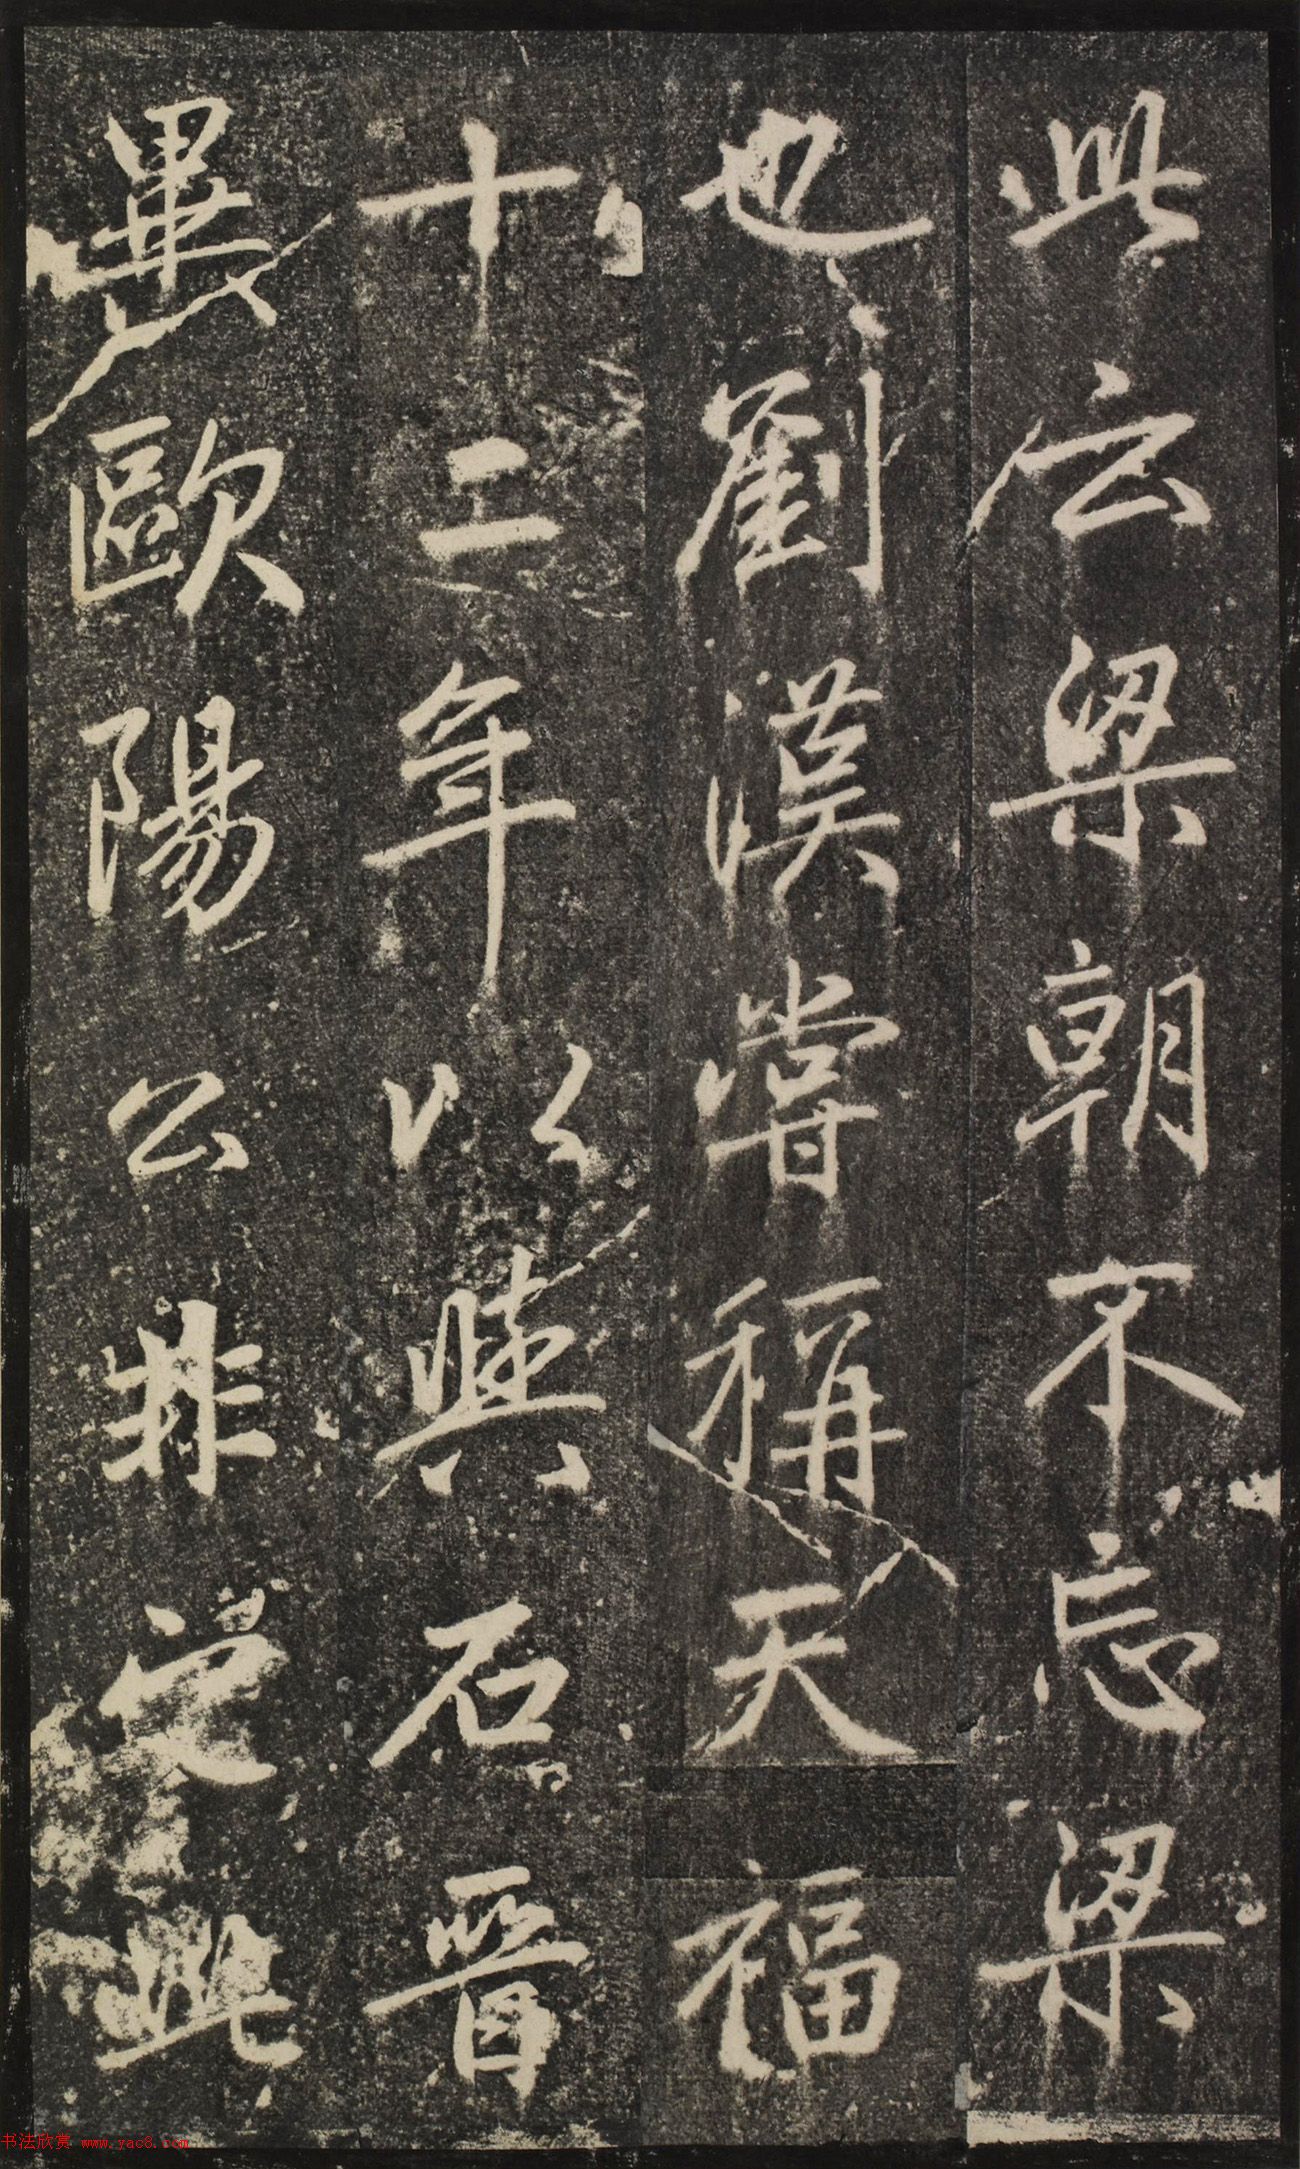 此云梁朝不忘梁
也劉漢嘗稱天福
十二年以與石晉
異歐陽公非受此
书法欣赏 www.yac8.com